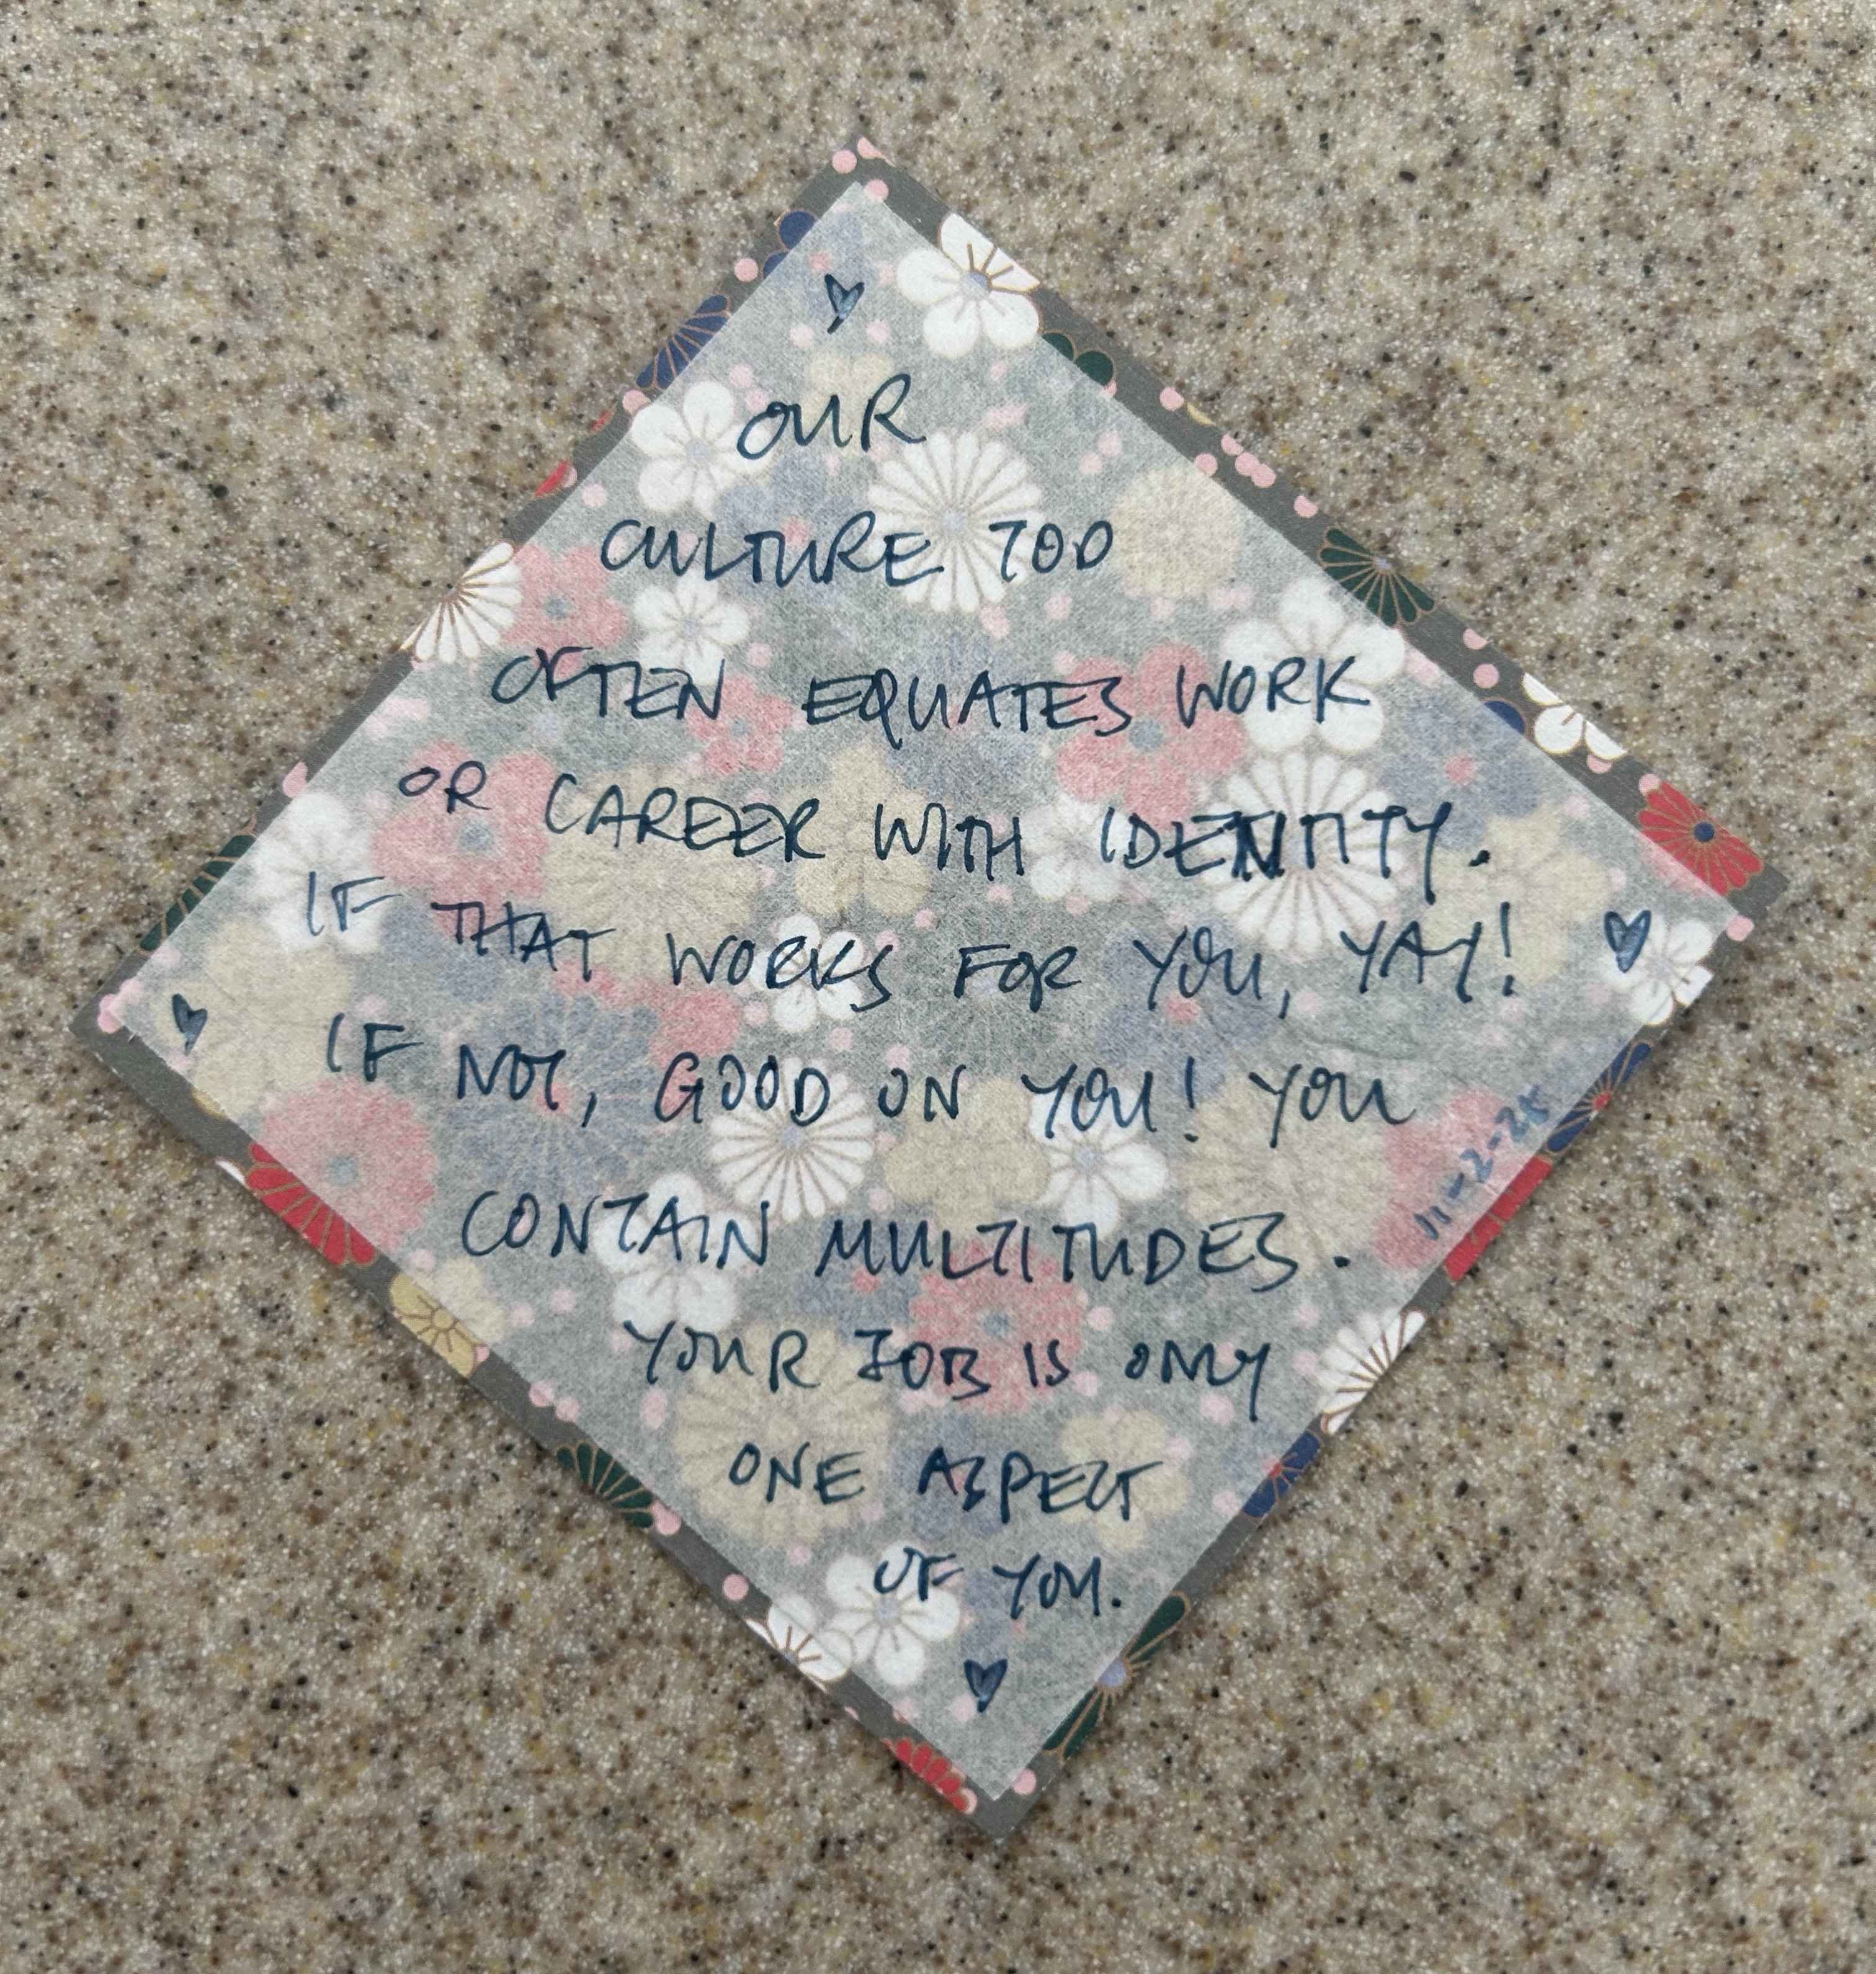 OUR
CULTURE TOO
OFTEN EQUATES WORK
OR CAREER WITH IDENTITY.
IF THAT WORKS FOR YOU, YAY!
IF NOT, GOOD ON YOU! YOU
CONTAIN MULTITUDES.
YOUR JOB IS ONLY
ONE ASPECT
OF YOU.
11-2-25